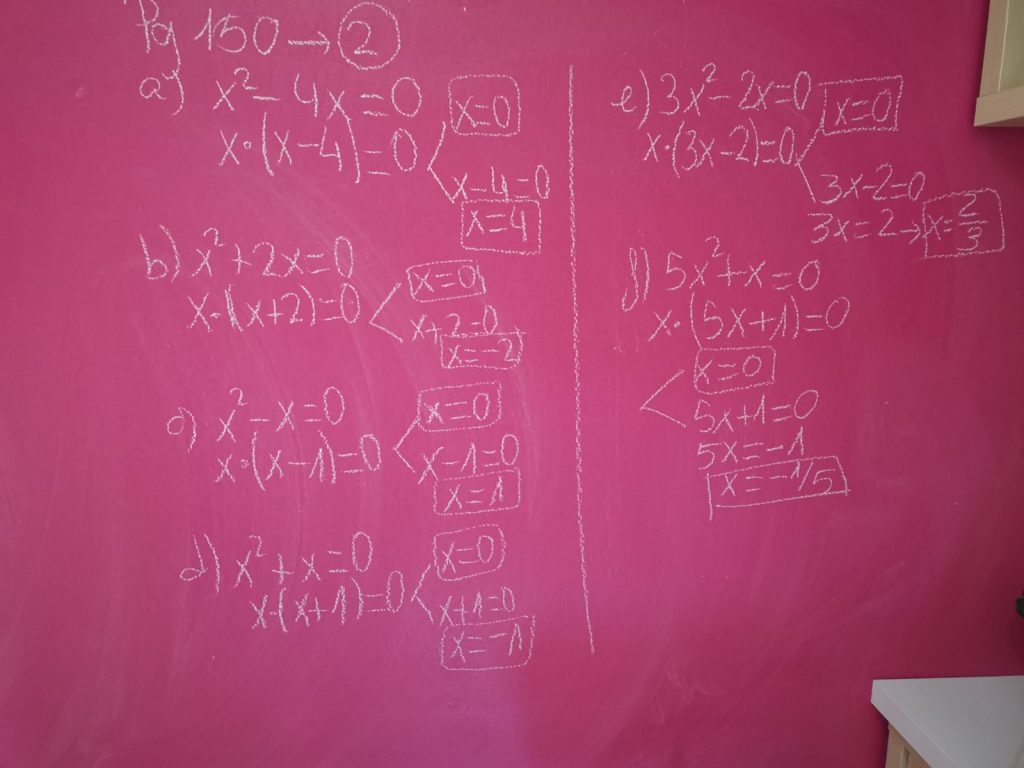 Pg 150 → 2
a) x² - 4x = 0
x·(x-4) = 0
x=0
x-4=0
x=4
b) x²+2x=0
x·(x+2)=0
x=0
x+2=0
x=-2
c) x²-x=0
x·(x-1)=0
x=0
x-1=0
x=1
d) x²+x=0
x·(x+1)=0
x=0
x+1=0
x=-1
e) 3x²-2x=0
x·(3x-2)=0
x=0
3x-2=0
3x=2→x=2/3
f) 5x²+x=0
x·(5x+1)=0
x=0
5x+1=0
5x=-1
x=-1/5